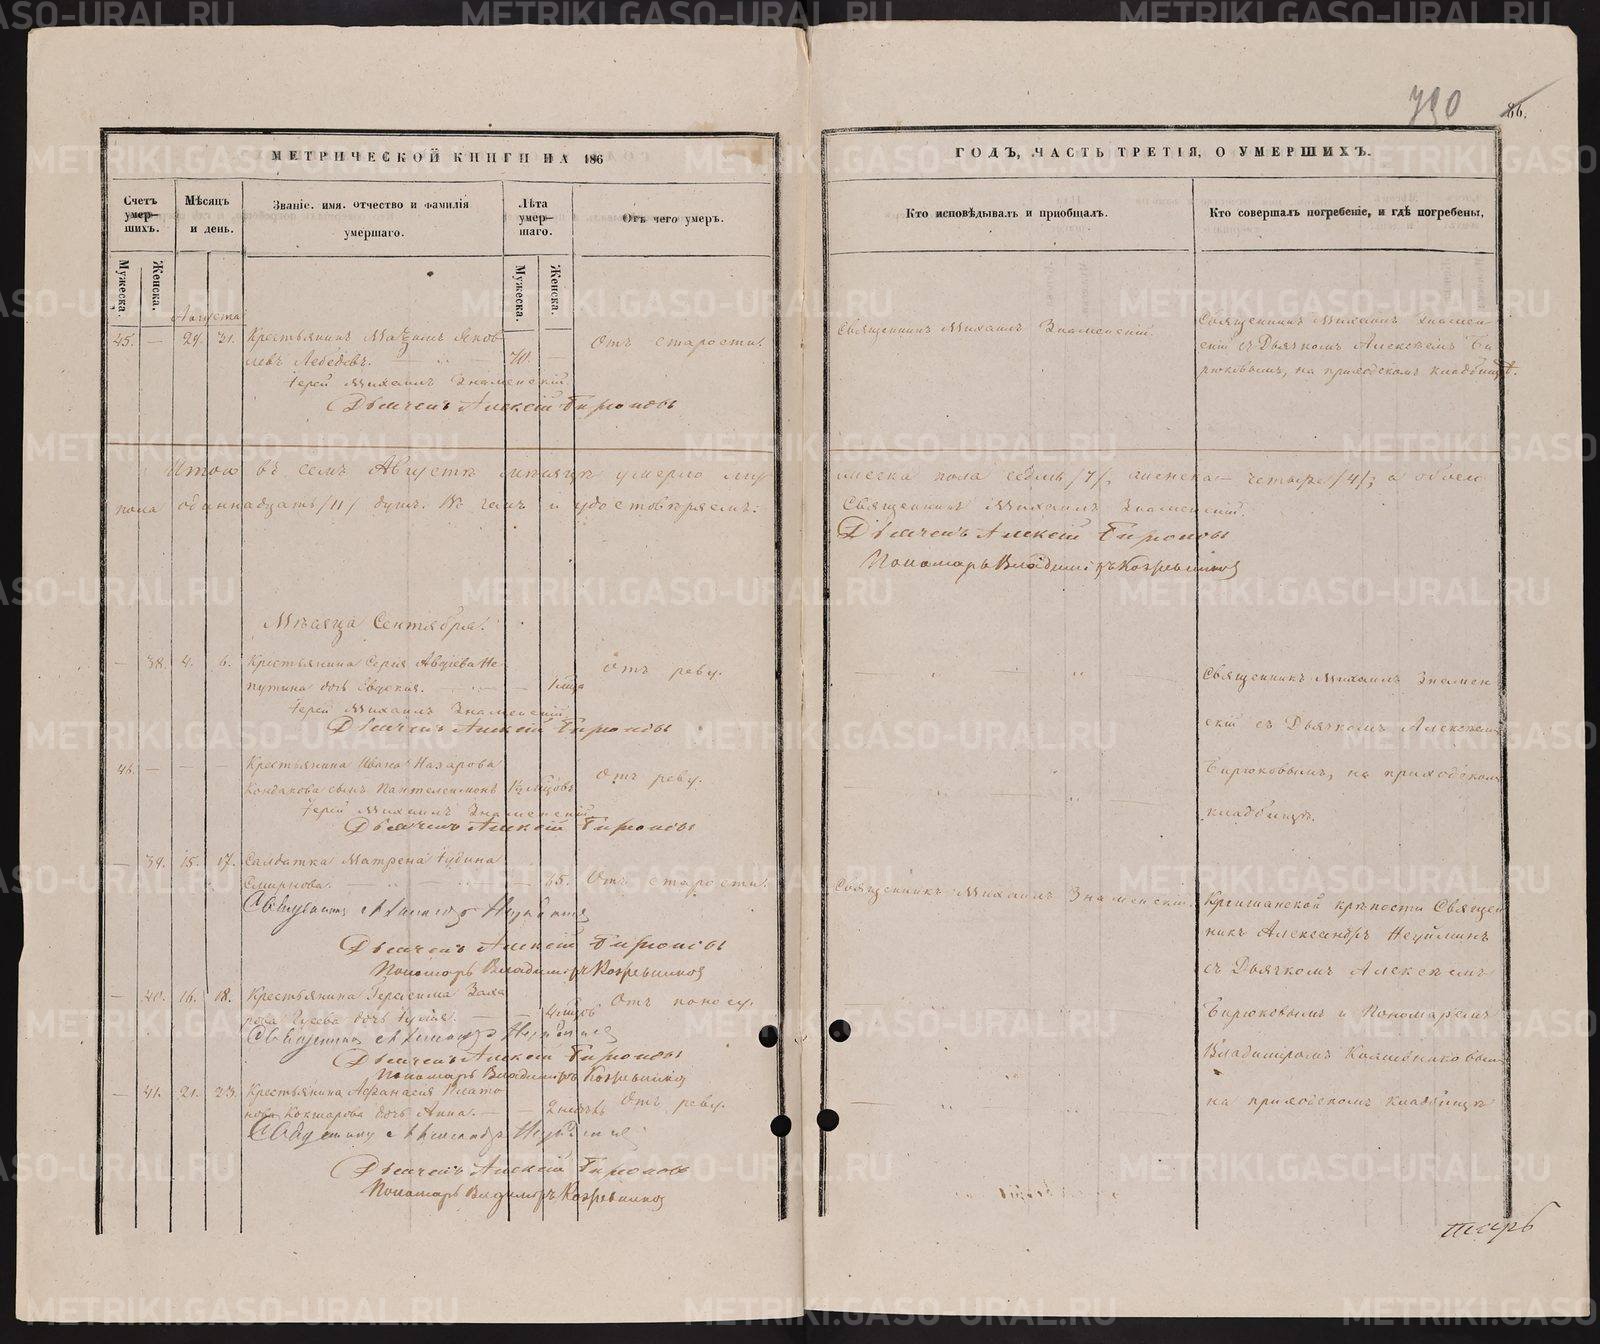 790
86.
МЕТРИЧЕСКОЙ КНИГИ НА 186
ГОДЪ, ЧАСТЬ ТРЕТІЯ, О УМЕРШИХЪ.
Счетъ умер- шихъ.
Мѣсяцъ и день.
Званіе. имя. отчество и фамилія умершаго.
Лѣта умер- шаго.
Отъ чего умеръ.
Мужеска.
Женска.
Мужеска.
Женска.
Кто исповѣдывалъ и пріобщалъ.
Кто совершалъ погребеніе, и гдѣ погребены,
Августа
45. — 29. 31. Крестьянинъ Максимъ Яков-
левъ Лебедевъ. 70. — Отъ старости.
Іерей Михаилъ Знаменскій.
Дьячекъ Алексій Бирюковъ
Священникъ Михаилъ Знаменскій.
Священникъ Михаилъ Знамен-
скій съ Дьячкомъ Алексѣемъ Би-
рюковымъ, на приходскомъ кладбищѣ.
Итого въ семъ Августѣ мѣсяцѣ умерло му
жеска пола седмь /7/, женска — четыре /4/; а обоего
пола одиннадцать /11/ душъ. Въ чемъ и удостовѣряемъ:
Священникъ Михаилъ Знаменскій.
Дьячекъ Алексій Бирюковъ
Пономарь Владиміръ
Мѣсяца Сентября.
— 38. 4. 6. Крестьянина Сергія Авдіева Не-
путина дочь Евдокія. — 1 мѣс. Отъ реву.
Іерей Михаилъ Знаменскій
Дьячекъ Алексій Бирюковъ
46. — — — Крестьянина Ивана Назарова
Кондакова сынъ Пантелеимонъ 1½ мѣсов. Отъ реву.
Іерей Михаилъ Знаменскій
Дьячекъ Алексій Бирюковъ
Священникъ Михаилъ Знамен-
скій съ Дьячкомъ Алексѣемъ
Бирюковымъ, на приходскомъ
кладбищѣ.
— 39. 15. 17. Салдатка Матрена Іудина
Смирнова. — 65. Отъ старости.
Священникъ Александръ Неуйминъ
Дьячекъ Алексій Бирюковъ
Пономарь Владиміръ
Священникъ Михаилъ Знаменскій.
— 40. 16. 18. Крестьянина Герасима Заха
рова Гусева дочь Отъ поносу.
Священникъ Александръ Неуйминъ
Дьячекъ Алексій Бирюковъ
Пономарь Владиміръ
— 41. 21. 23. Крестьянина Афанасія Плато
нова Кокшарова дочь Анна. — 2 Отъ реву.
Священникъ Александръ Неуйминъ
Дьячекъ Алексій Бирюковъ
Пономарь Владиміръ
крѣпости Священ
никъ Александръ Неуйминъ
съ Дьячкомъ Алексѣемъ
Бирюковымъ и Пономаремъ
Владиміромъ
на приходскомъ кладбищѣ
METRIKI.GASO-URAL.RU